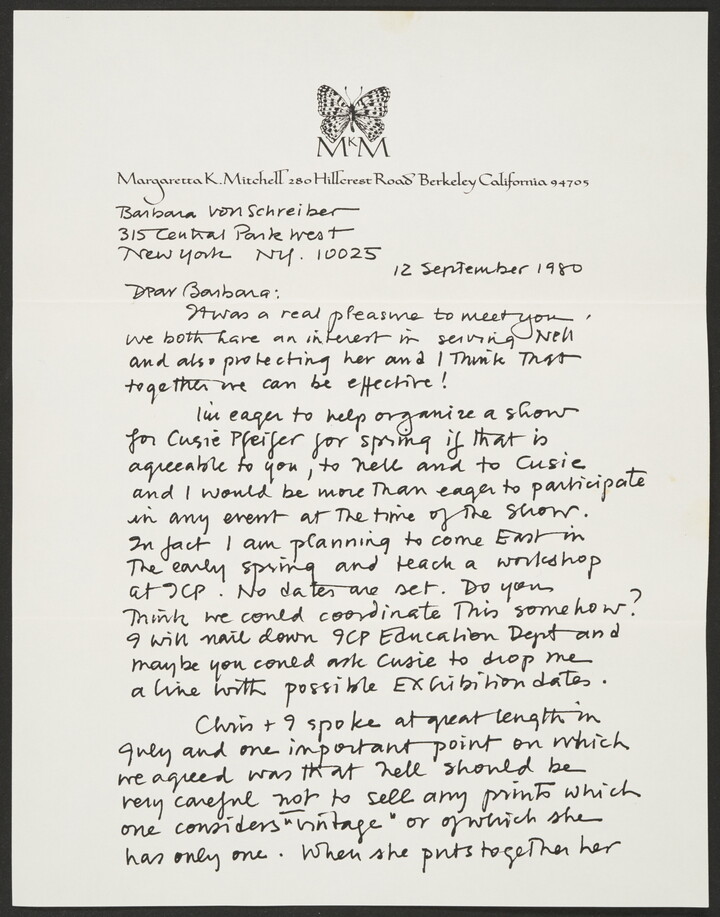 MKM
Margaretta K. Mitchell 280 Hillcrest Road Berkeley California 94705
Barbara Von Schreiber
315 Central Park West
New York NY. 10025
12 September 1980
Dear Barbara:
It was a real pleasure to meet you.
we both have an interest in serving Nell
and also protecting her and I Think That
together we can be effective!
I'm eager to help organize a show
for Cusie Pfeifer for spring if that is
agreeable to you, to Nell and to Cusie
and I would be more Than eager to participate
in any event at The time of The show.
In fact I am planning to come East in
The early spring and teach a workshop
at ICP. No dates are set. Do you
Think we could coordinate This somehow?
I will nail down ICP Education Dept and
maybe you could ask Cusie to drop me
a line with possible Exhibition dates.
Chris + I spoke at great length in
July and one important point on which
we agreed was that Nell should be
very careful not to sell any prints which
one considers "vintage" or of which she
has only one. When she puts together her